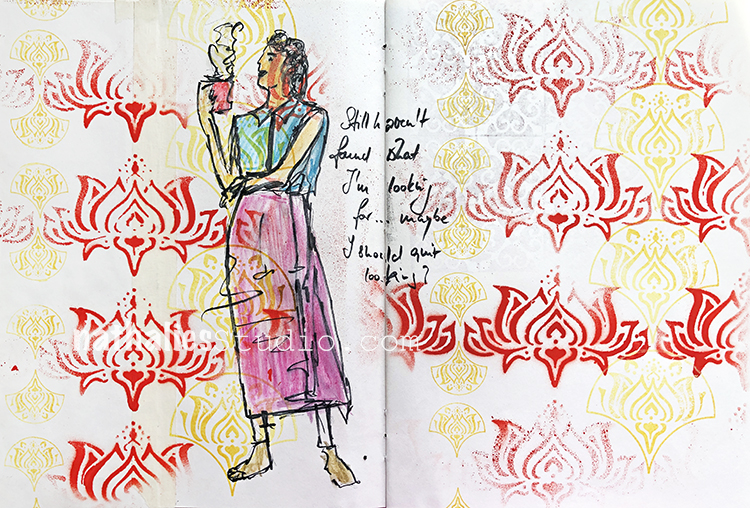 Still haven't
found what
I'm looking
for... maybe
I should quit
looking?
nathaliesstudio.com